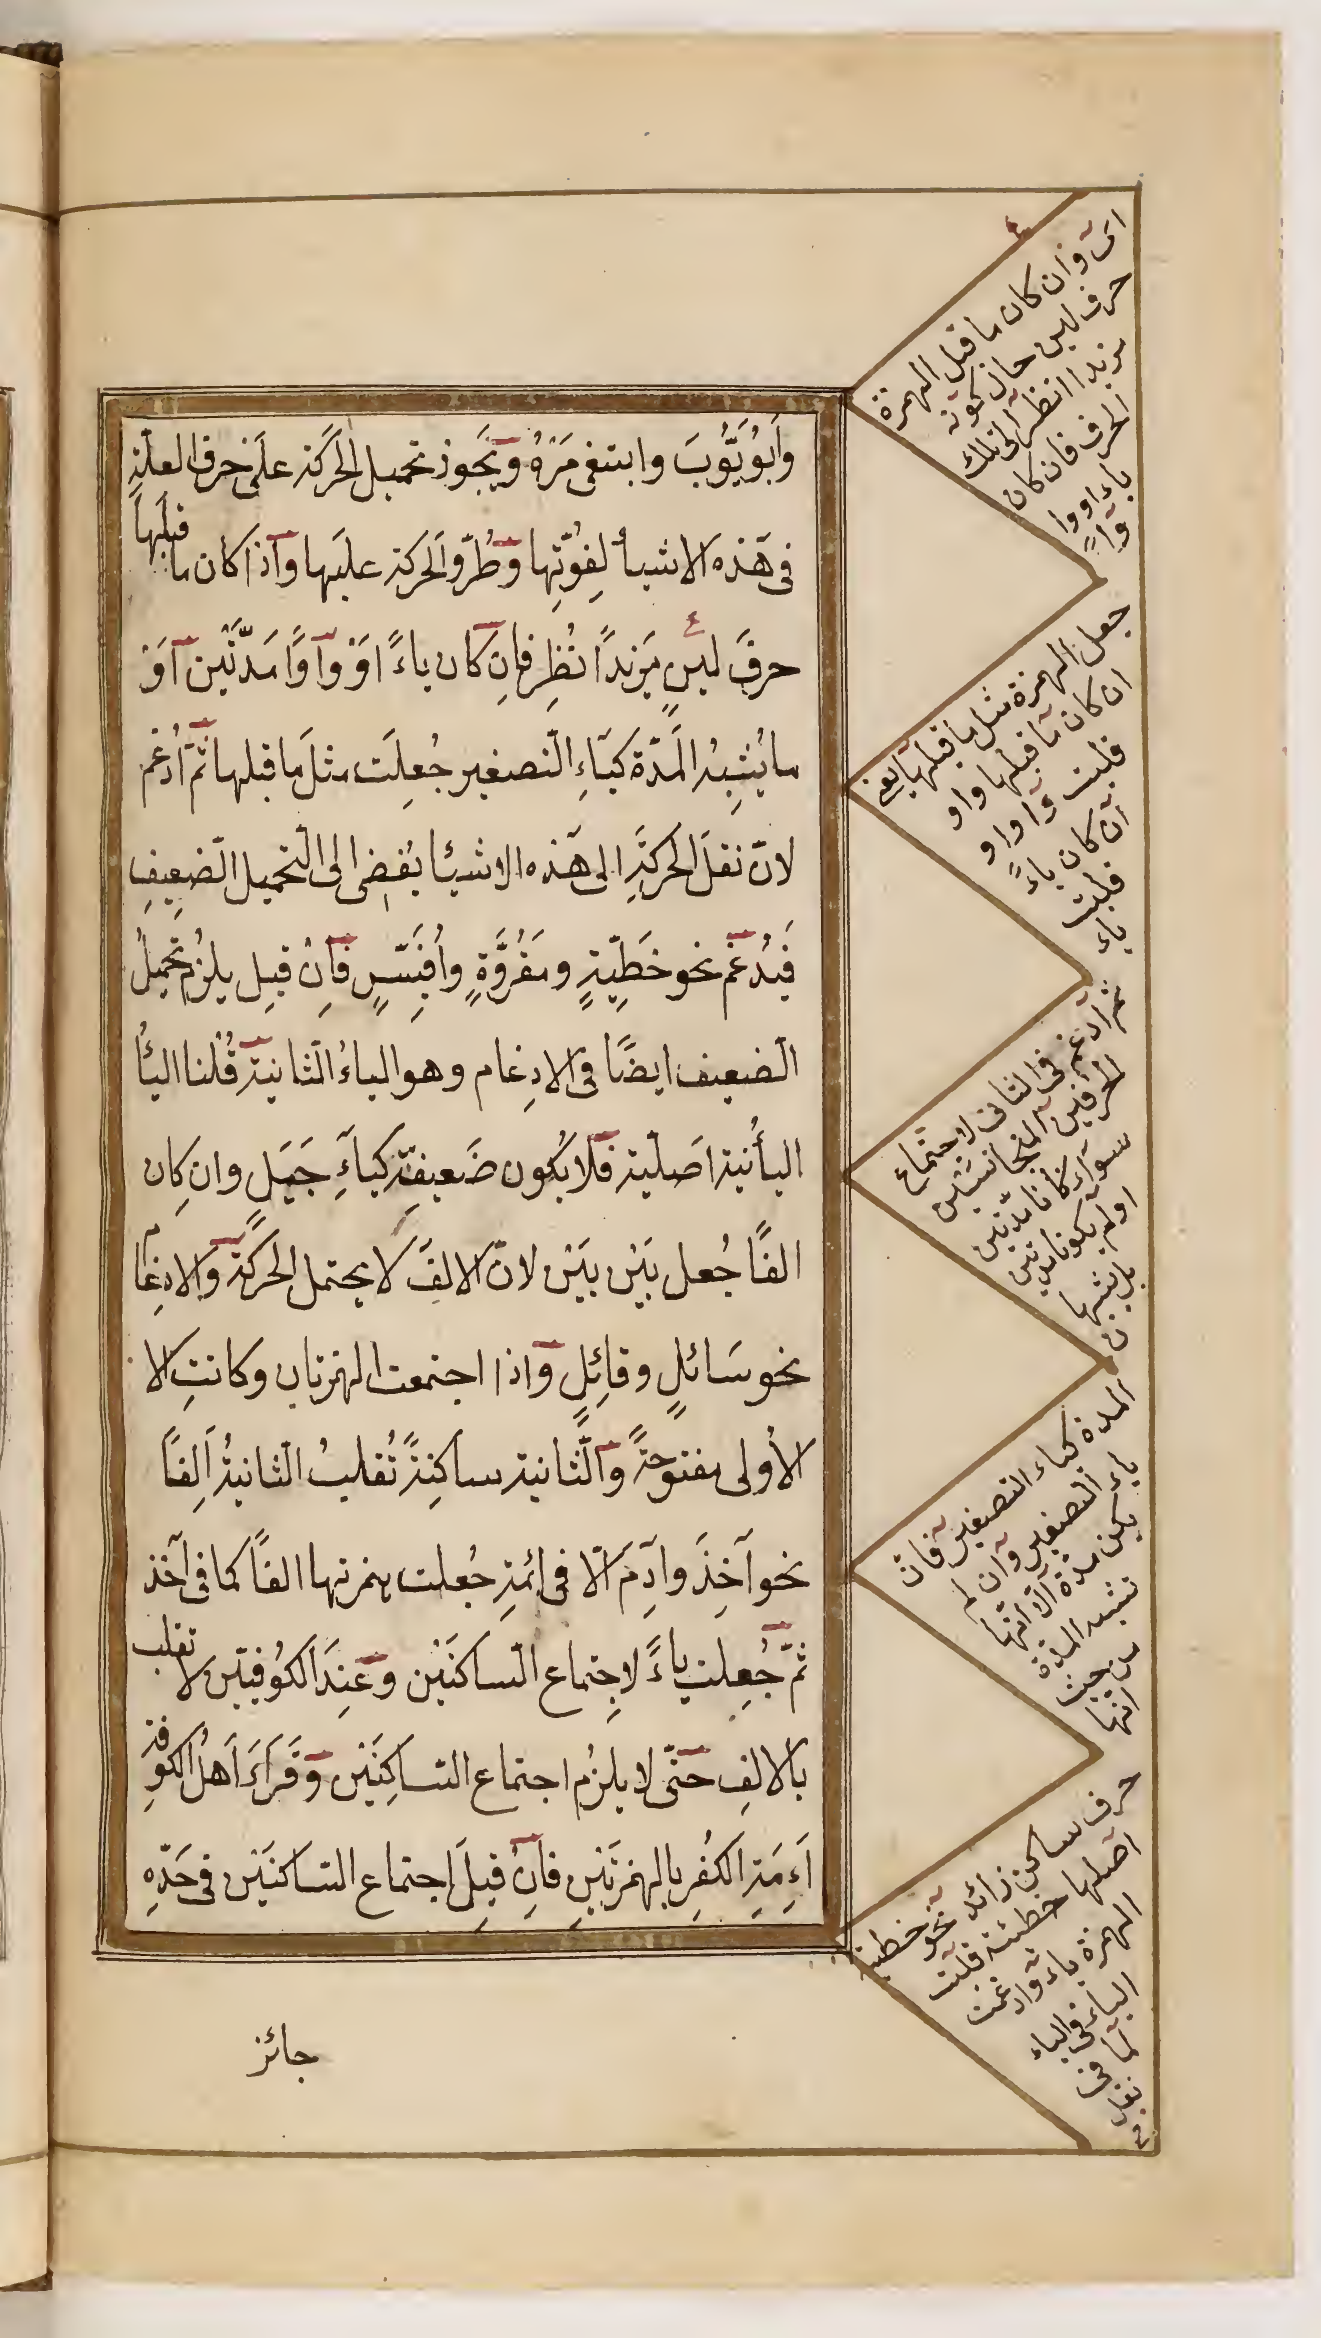 وَاَبُو يُّوبَ وابتغى مَرْهُ وَيَجُوز تحميل الحَرَكة علَى حرف العلّةِ
فى هَذه الاشيأ لِقُوّتِها وَطُرُوّ الحركة عليَها وَآذا كان ما قبلَها
حرفَ لينٍ مَزيداً نُظِر فاِن كان ياءً اوَ وآوًا مَدّتَيْن آوَ
ما يُشبِهُ المَدّة كيَاءِ التّصغير جُعِلَت مثلَ ما قبلها ثمّ اُدُغِم
لانّ نقلَ الحركَةِ الى هَذه الاشيأ يُفضِى الى التحميل الضّعِيفِ
فَيُدغَم نحو خَطِيّةٍ ومَقرُوَّةٍ واُفَيّسٍ فاِنْ قيِل يلزُم تحميلُ
الضّعيف ايضًا فى الادغام وهو الياءُ الثّانيَة قُلنا اليأ
اليأنية اصَليّة فلا يَكُون ضَعيفة كياَءِ جَيَلٍ وان كان
الفًا جُعل بَيْن بَيْن لانّ الالِفَ لا يحتمل الحركةَ والادغَا
نحو سَائلٍ وقائِلٍ وَاذا اجتمعت الهمزتان وكانتِ الا
الأولى مفتوحةً وَالثّانية ساكِنةً تُقلبُ الثانيةُ اَلِفًا
نحو آخَذَ وآدَمَ اِلّا فى ائمةِ جُعلت همزتها الفًا كما فى آخذ
ثمّ جُعِلت ياءً لاجتِماع السّاكنَيْن وَعنِدَ الكوُفيّن لا تقلب
بالالفِ حتّى لا يلزُم اجتماع السّاكِنَيْن وَقَرَاءَ اَهلُ الكوفة
اَءِمَةَ الكُفِر بالهمزتَيْنِ فاِنْ قيِلَ اِجتماع السّاكنَيْن فى حَدّهِ
جائز
اى وان كان ما قبل الهمزة
حرف لين حال كونه
مزيدا انظر الى تلك
الحرف فان كان
ياء او وا
واً
جعل الهمزة مثل ما قبلها يعنى
ان كان ما قبلها واو
قلبت واوا و
ان كان ياءً
قلبت
ياء
ثم ادغم فى الثانى لاجتماع
الحرفين المتجانسين
سوآء كانا مدّتين
او لم يكونا مدتين
بل يشبها
ن
المدة كياء التصغير فان
ياء التصغير وان لم
يكن مدة الا انّها
تشبه المدة
من حيث
انها
حرف ساكن زائد نحو خطية
اصلها خطيئة قلبت
الهمزة ياء وادغمت
الياء فى الياء
لما فى
نقل